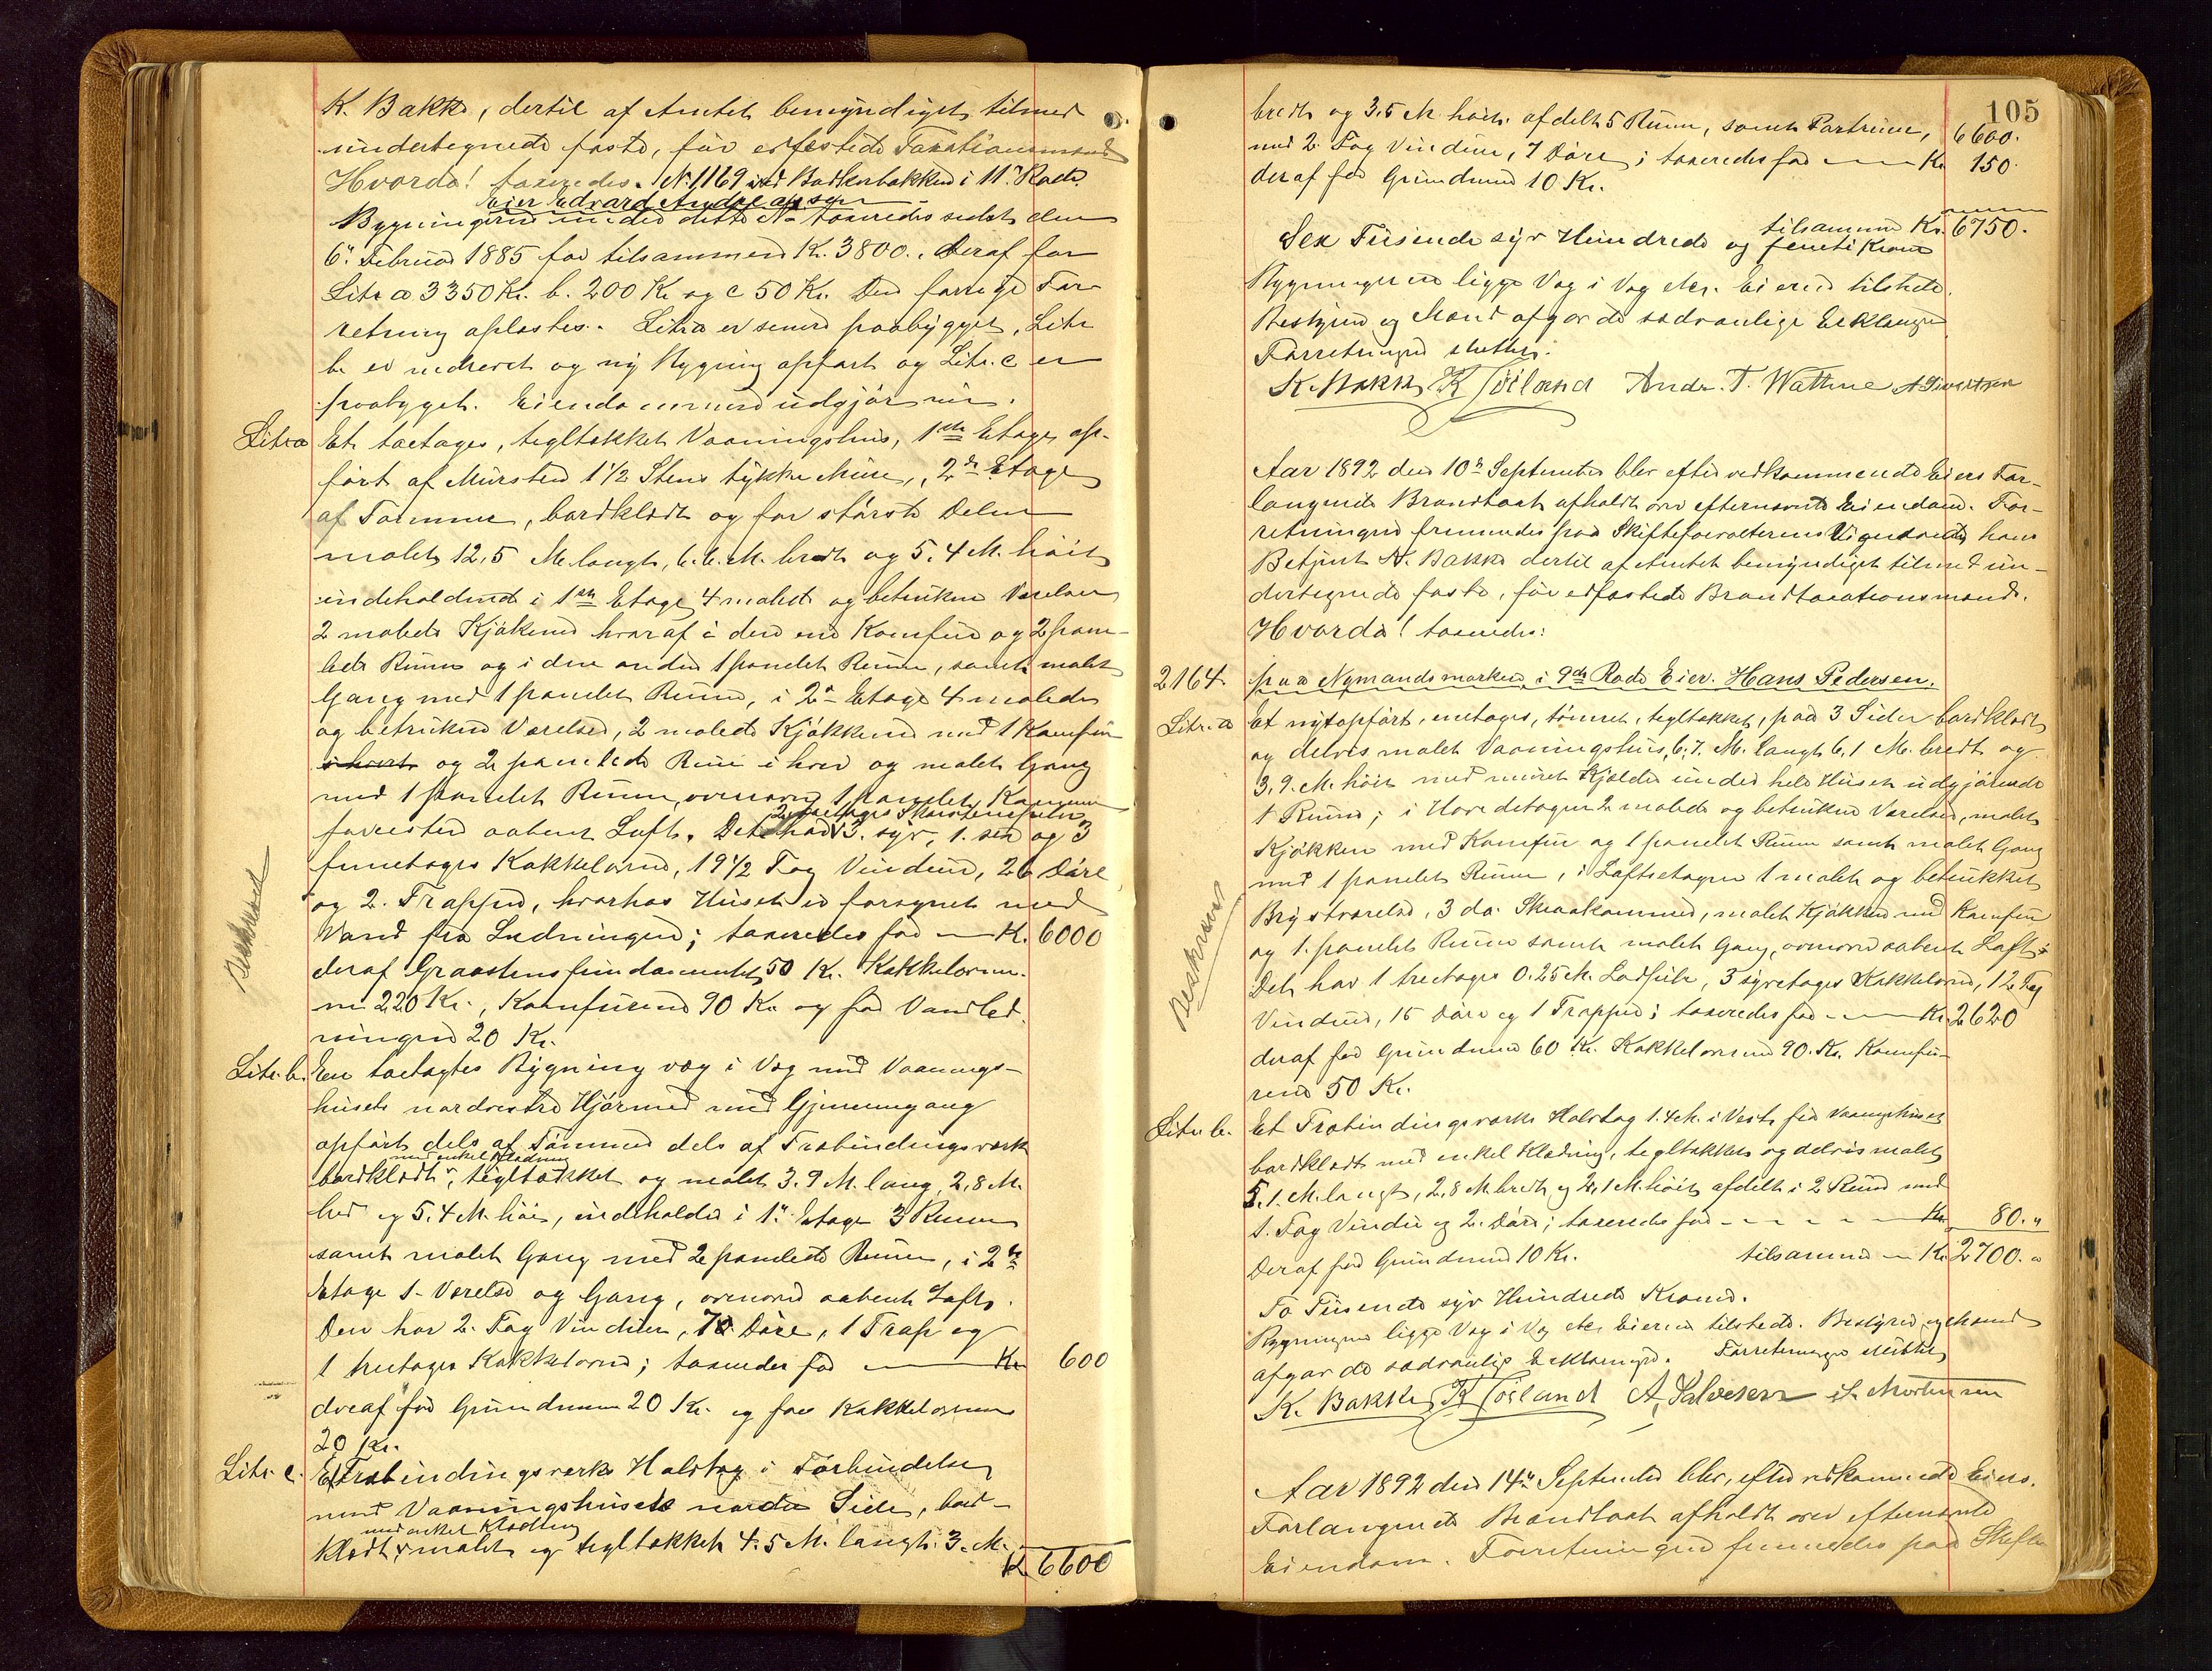 K. Bakke, dertil af Amtet bemyndiget tilmed
undertegnede faste, før edfæstede Taxationsmænd
Hvorda! taxeredes. No 1169 ved Bødkerbakken i 11te Rode.
Eier Edvard Andreassen
Bygningerne under dette No taxeredes sidst den
6te Februar 1885 for tilsammen Kr. 3800. Deraf for
Litr a 3350 Kr. b. 200 Kr. og c 50 Kr. Den forrige For-
retning oplæstes. Litra a er senere paabygget, Litr
b. er nedrevet og ny Bygning opført og Litr. c er
paabygget. Eiendommen udgjør nu.
Litr a Et toetages, tegltækket Vaaningshus, 1ste Etage op-
ført af Mursten 1 1/2 Stens tykke Mure, 2den Etage
af Tømmer, bordklædt og for største Delen
malet 12,5 M. langt, 6.6. M. bredt og 5.4 M. høit
indeholdende i 1ste Etage 4 malede og betrukne Værelser
2 malede Kjøkkener hvoraf i den ene Komfur og 2 pane-
lede Rum og i den anden 1 panelet Rum, samt malet
Gang med 1 panelet Rum, i 2den Etage 4 malede
og betrukne Værelser, 2 malede Kjøkkener med 1 Komfur
i hvert og 2 panelede Rum i hver og malet Gang
med 1 panelet Rum, ovenover 1 panelet Kammer
2 Skorstenspiber
forresten aabent Loft. Det har 3. syv, 1. sex og 3
femetages Kakkelovne, 19 1/2 Fag Vinduer, 26 Døre
og 2. Trapper, hvorhos Huset er forsynet med
Vand fra Ledningen; taxeredes for — Kr. 6000
deraf Graastensfundamentet 50 Kr. Kakkelovne-
ne 220 Kr., Komfurene 90 Kr. og for Vandled-
ningen 20 Kr.
Beskrevet
Litr. b. En toetages Bygning væg i Væg med Vaanings-
husets nordvestre Hjørne med Gjennemgang
opført dels af Tømmer dels af Træbindingsværk
med enkel Klædning
bordklædt, tegltækket og malet 3.9 M. lang, 2,8 M.
bred og 5.4 M. høi, indeholder i 1ste Etage 3 Rum
samt malet Gang med 2 panelede Rum, i 2den
Etage 1 Værelse og Gang, ovenover aabent Loft.
Den har 2. Fag Vinduer, 7 Døre, 1 Trap og
1 treetages Kakkelovn; taxeredes for — Kr. 600
deraf for Grundmur 20 Kr. og for Kakkelovnen
20 Kr.
Litr. c. Et Træbindingsværks Halvtag i Forbindelse
med Vaaningshusets nordre Side, bord-
med enkel Klædning
klædt, malet og tegltækket 4.5 M. langt. 3. M.
Kr. 6600
105
bredt og 3.5 M høit. afdelt 5 Rum, samt Portrum, 6600.
med 2 Fag Vinduer, 7 Døre; taxeredes for — Kr 150.
deraf for Grundmur 10 Kr.
tilsammen Kr. 6750.
Sex Tusinde syv Hundrede og femti Kroner
Bygningerne ligge Væg i Væg etc. Eieren tilstede.
Bestyrer og Mænd afgav de sædvanlige Erklæringer
Forretningen sluttet.
K. Bakke K Göiland Andr. T. Wathne A Sivertsen
Aar 1892 den 10de September blev efter vedkommende Eiers For-
langende Brandtaxt afholdt over efternævnte Eiendom. For-
retningen fremmedes paa Skifteforvalterens Vegne ved hans
Betjent K. Bakke dertil af Amtet bemyndiget tilmed un-
dertegnede faste, før edfæstede Brandtaxationsmænd.
Hvorda! taxeredes:
2164. paa Nymandsmarken i 9de Rode Eier. Hans Pedersen.
Litr. a Et nytopført, enetages, tømret, tegltækket, paa 3 Sider bordklædt
og delvis malet Vaaningshus, 6,7. M. langt 6,1 M. bredt og
3,9. M. høit med muret Kjælder under hele Huset udgjørende
1 Rum; i Hovedetagen 2 malede og betrukne Værelser, malet
Kjøkken med Komfur og 1 panelet Rum samt malet Gang
med 1 panelet Rum, i Loftsetagen 1 malet og betrukket
Brystværelse, 3 do. Skraakammere, malet Kjøkken med Komfur
og 1. panelet Rum samt malet Gang, ovenover aabent Loft.
Det har 1 treetages 0.25 M. Lodpibe, 3 syvetages Kakkelovne, 12 Fag
Vinduer, 15 Døre og 1 Trappe; taxeredes for — Kr. 2620
deraf for Grundmur 60 Kr. Kakkelovnene 90. Kr. Komfu-
rene 50 Kr.
Beskrevet
Litr. b. Et Træbindingsværks Halvtag 1.4 M. i Vest for Vaaningshuset
bordklædt med enkel Klædning, tegltækket og delvis malet
5.1. M. langt, 2,8 M. bredt og 2,1 M. høit afdelt i 2 Rum med
1. Fag Vindu og 2. Døre; taxeredes for — Kr. 80. "
Deraf for Grundmur 10 Kr. tilsammen — Kr. 2700. "
To Tusende syv Hundrede Kroner.
Bygningerne ligge Væg i Væg etc. Eieren tilstede. Bestyrer og Mænd
afgav de sædvanlige Erklæringer. Forretningen sluttet
K. Bakke K Göiland A. Salvesen S. Mortensen
Aar 1892 den 14de September blev, efter vedkommende Eiers.
Forlangende Brandtaxt afholdt over efternævnte
Eiendom. Forretningen fremmedes paa Skifte